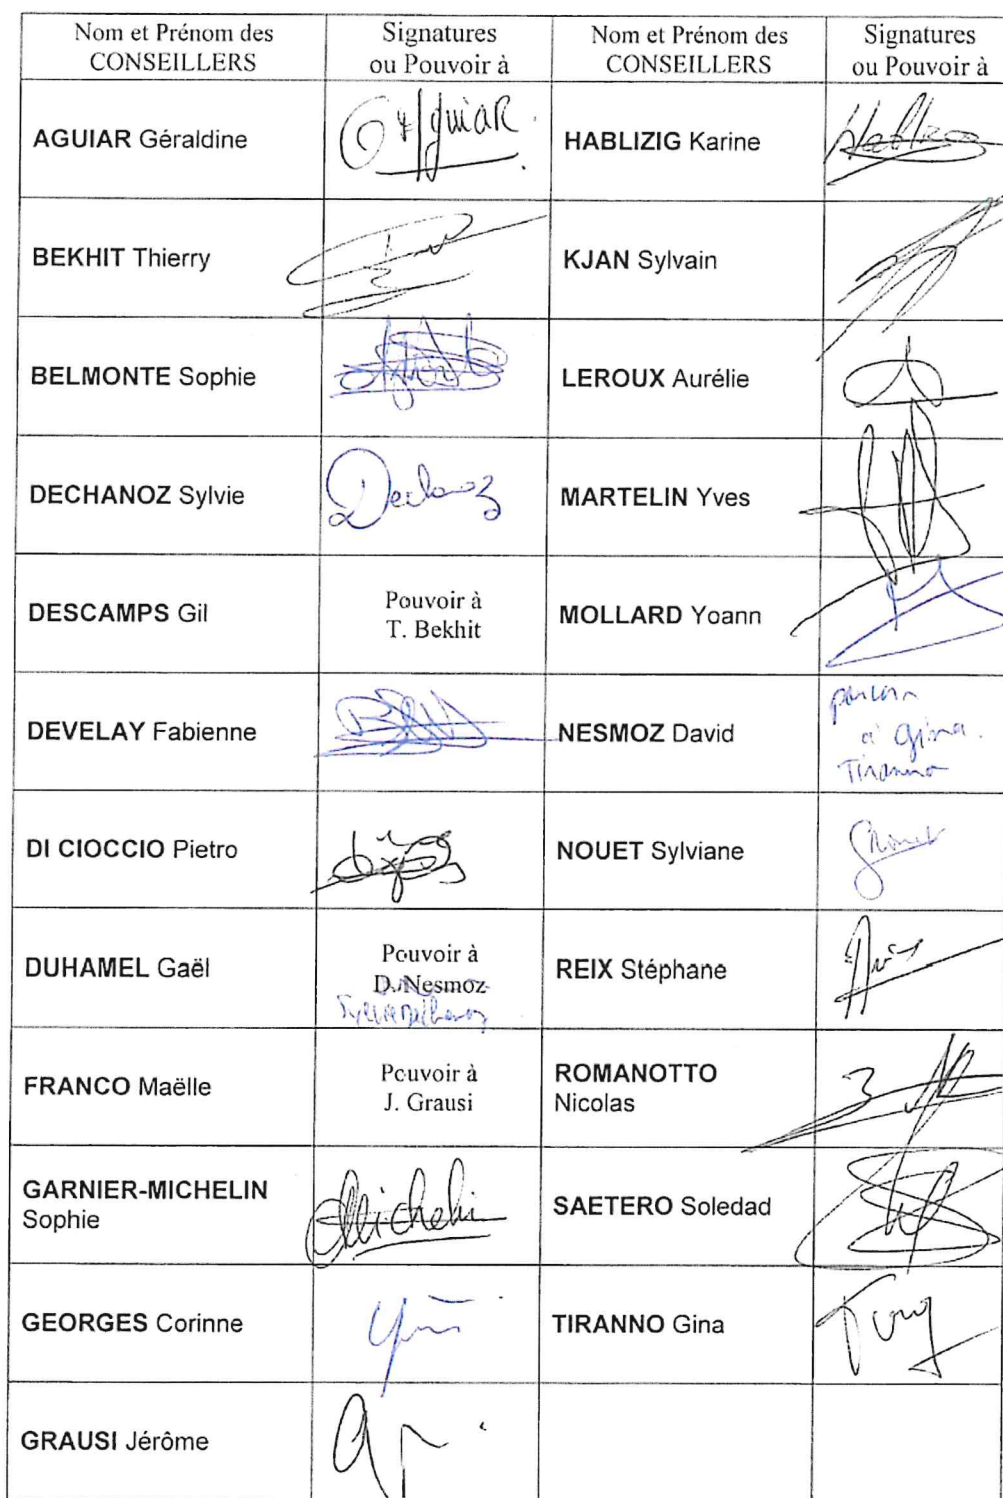 Nom et Prénom des CONSEILLERS | Signatures ou Pouvoir à | Nom et Prénom des CONSEILLERS | Signatures ou Pouvoir à
AGUIAR Géraldine | G Aguiar | HABLIZIG Karine
BEKHIT Thierry | KJAN Sylvain
BELMONTE Sophie | LEROUX Aurélie
DECHANOZ Sylvie | Dechanoz | MARTELIN Yves
DESCAMPS Gil | Pouvoir à T. Bekhit | MOLLARD Yoann
DEVELAY Fabienne | NESMOZ David | pouvoir à Gina Tiranno
DI CIOCCIO Pietro | NOUET Sylviane | SNouet
DUHAMEL Gaël | Pouvoir à D. Nesmoz Sylvie Dechanoz | REIX Stéphane
FRANCO Maëlle | Pouvoir à J. Grausi | ROMANOTTO Nicolas
GARNIER-MICHELIN Sophie | Michelin | SAETERO Soledad
GEORGES Corinne | TIRANNO Gina
GRAUSI Jérôme